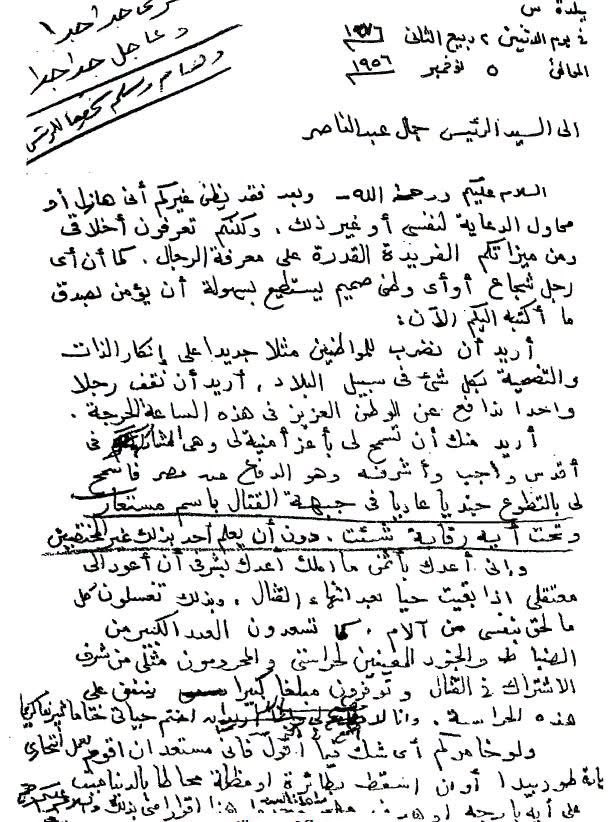 سرى جدا جدا
وعاجل جدا جدا
بلدة س
فى يوم الاثنين ٢ ربيع الثانى ١٣٧٦
الموافق ٥ نوفمبر ١٩٥٦
الى السيد الرئيس جمال عبد الناصر
السلام عليكم ورحمة الله ـ وبعد فقد يظن غيركم أنى هازل أو
محاول الدعاية لنفسى أو غير ذلك . ولكنكم تعرفون أخلاقى
ومن ميزاتكم الفريدة القدرة على معرفة الرجال . كما أن أى
رجل شجاع أو أى وطنى صميم يستطيع بسهولة أن يؤمن بصدق
ما أكتبه اليكم الآن :
أريد أن نضرب للمواطنين مثلا جديدا على إنكار الذات
والتضحية بكل شئ فى سبيل البلاد . أريد أن نقف رجلا
واحدا ندافع عن الوطن العزيز فى هذه الساعة الحرجة .
أريد منك أن تسمح لى بأعز أمنية لى وهى المشاركة فى
أقدس واجب وأشرفه وهو الدفاع عن مصر فاسمح
لى بالتطوع جنديا عاديا فى جبهة القتال باسم مستعار
وتحت أية رقابة شئت . دون أن يعلم أحد بذلك غير المختصين
وإنى أعدك بأثمن ما أملك أعدك بشرفى أن أعود الى
معتقلى اذا بقيت حيا بعد انتهاء القتال . وبذلك تغسلون كل
ما لحق بنفسى من آلام . كما تسعدون العدد الكبير من
الضباط والجنود المعينين لحراستى والمحرومون مثلى من شرف
الاشتراك فى القتال وتوفرون مبلغا كبيرا ينفق على
هذه الحراسة . وانا اختم حياتى ختاما
ولو خامركم أى شك فيما أقول فانى مستعد ان اقوم بعمل انتحارى
طوربيدا أو ان اسقط بطائرة او مظلة محاطا بالديناميت
على أية بارجة